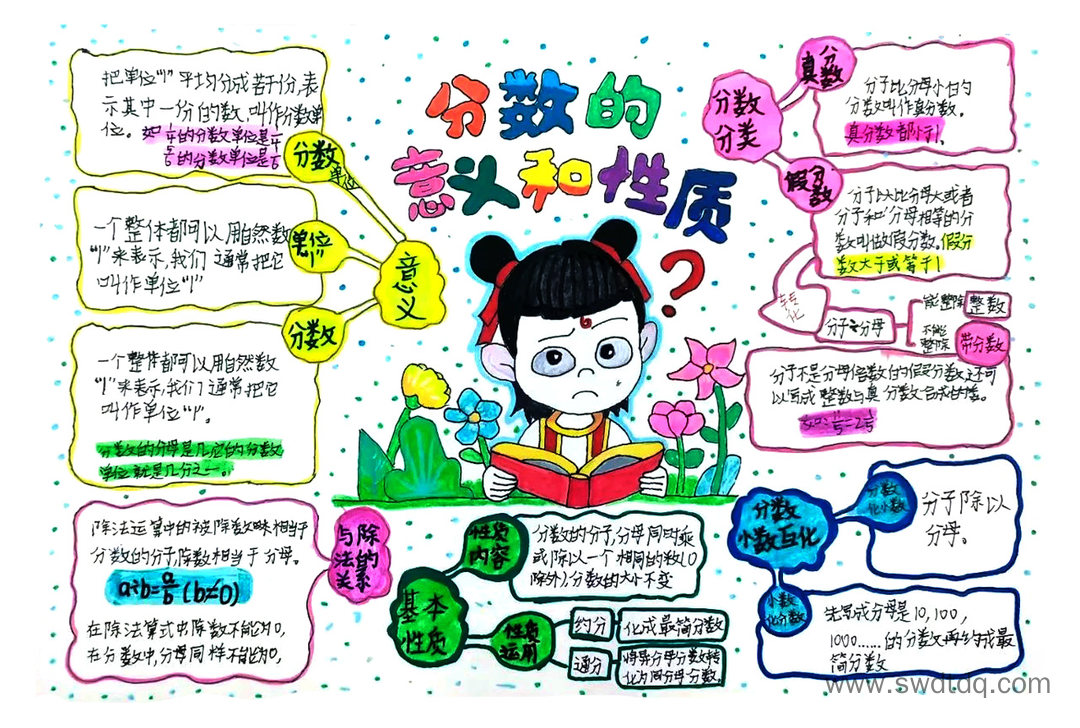 分数的
意义和性质
?
意义
分数
单位
把单位“1”平均分成若干份,表
示其中一份的数,叫作分数单
位。如1/4的分数单位是1/4
5/6的分数单位是1/6
单位
“1”
一个整体都可以用自然数
“1”来表示,我们通常把它
叫作单位“1”
分数
一个整体都可以用自然数
“1”来表示,我们通常把它
叫作单位“1”。
分数的分母是几,它的分数
单位就是几分之一。
与除
法的
关系
除法运算中的被除数
相当于
分数的分子,除数相当于分母。
a÷b=a/b (b≠0)
在除法算式中除数不能为0,
在分数中,分母同样不能为0,
分数
分类
真分
数
分子比分母小的
分数叫作真分数。
真分数都小于1。
假分
数
分子比分母大或者
分子和分母相等的分
数叫做假分数。假分
数大于或等于1
转化
分子÷分母
能整除
整数
不能
整除
带分数
分子不是分母倍数的假分数,还可
以写成整数与真分数合成的
基本
性质
性质
内容
分数的分子,分母同时乘
或除以一个相同的数(0
除外)分数的大小不变
性质
运用
约分
化成最简分数
通分
将异分母分数转
化为同分母分数。
分数
小数互化
分数
化小数
分子除以
分母。
小数
化分数
先写成分母是10,100,
1000……的分数再约成最
简分数
www.swdtdq.com